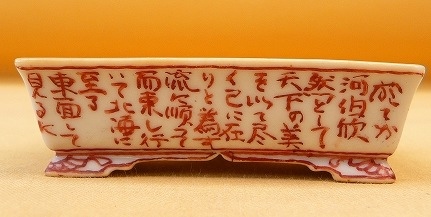 於てか
河伯欣
然として
天下の美
を以て尽
く己に在
りと為す
流に順つて
而東し行
いて北海に
至る
東面して
見る